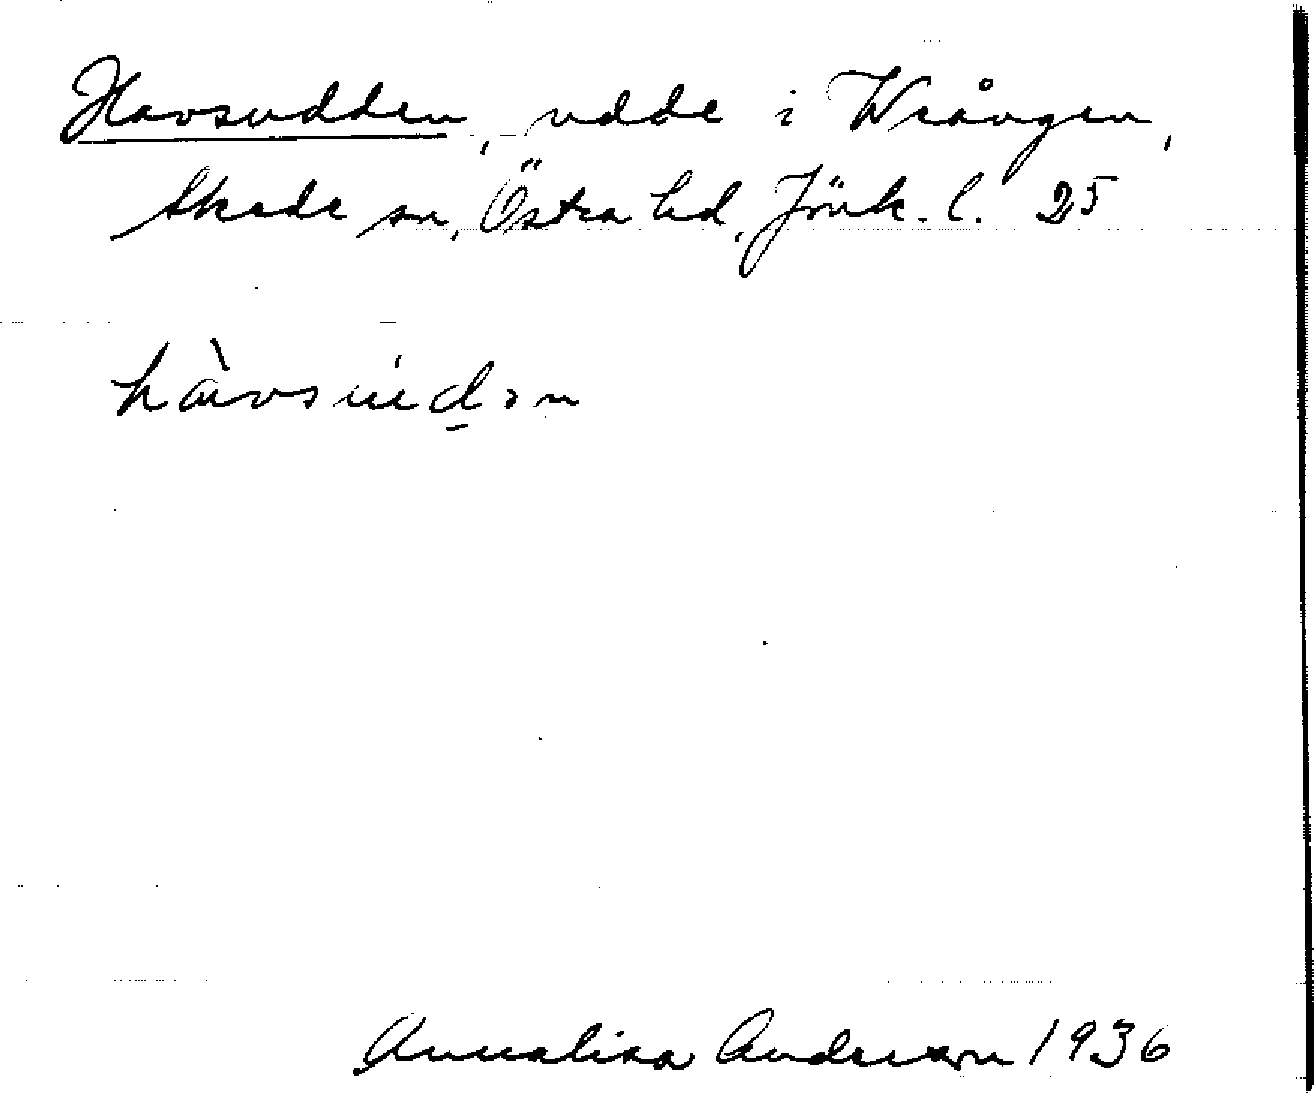 Havsudden, udde i Wrången,
Skede sn, Östra hd, Jönk. l. 25
hàvsúdən
Annalisa Anderson 1936